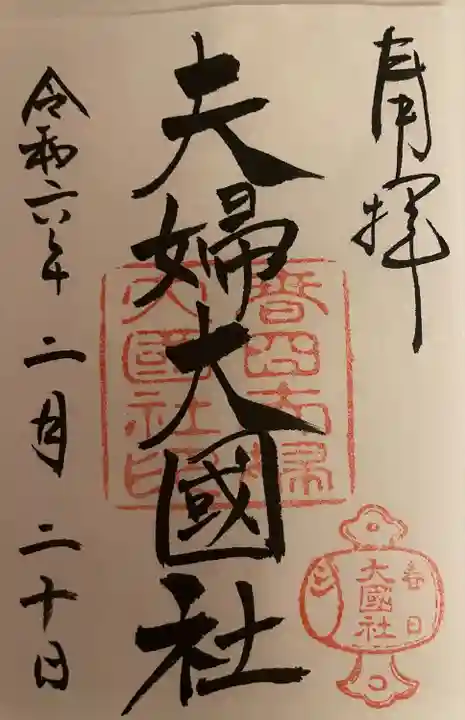 奉拝
夫婦大國社
令和六年二月二十日
春日夫婦
大國社印
春日
大國社